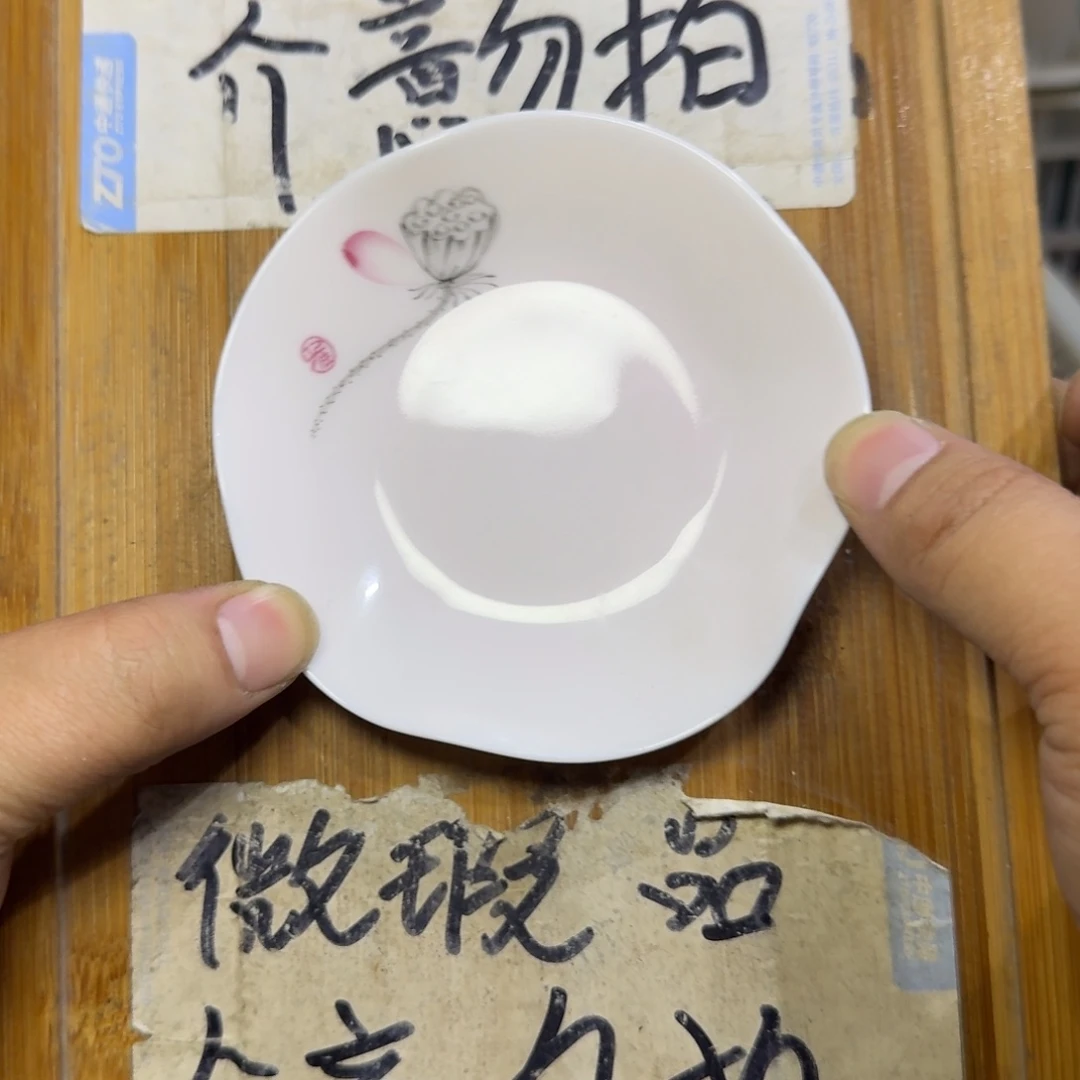 介意勿拍
ZTO中通快递
微瑕品
介意勿拍